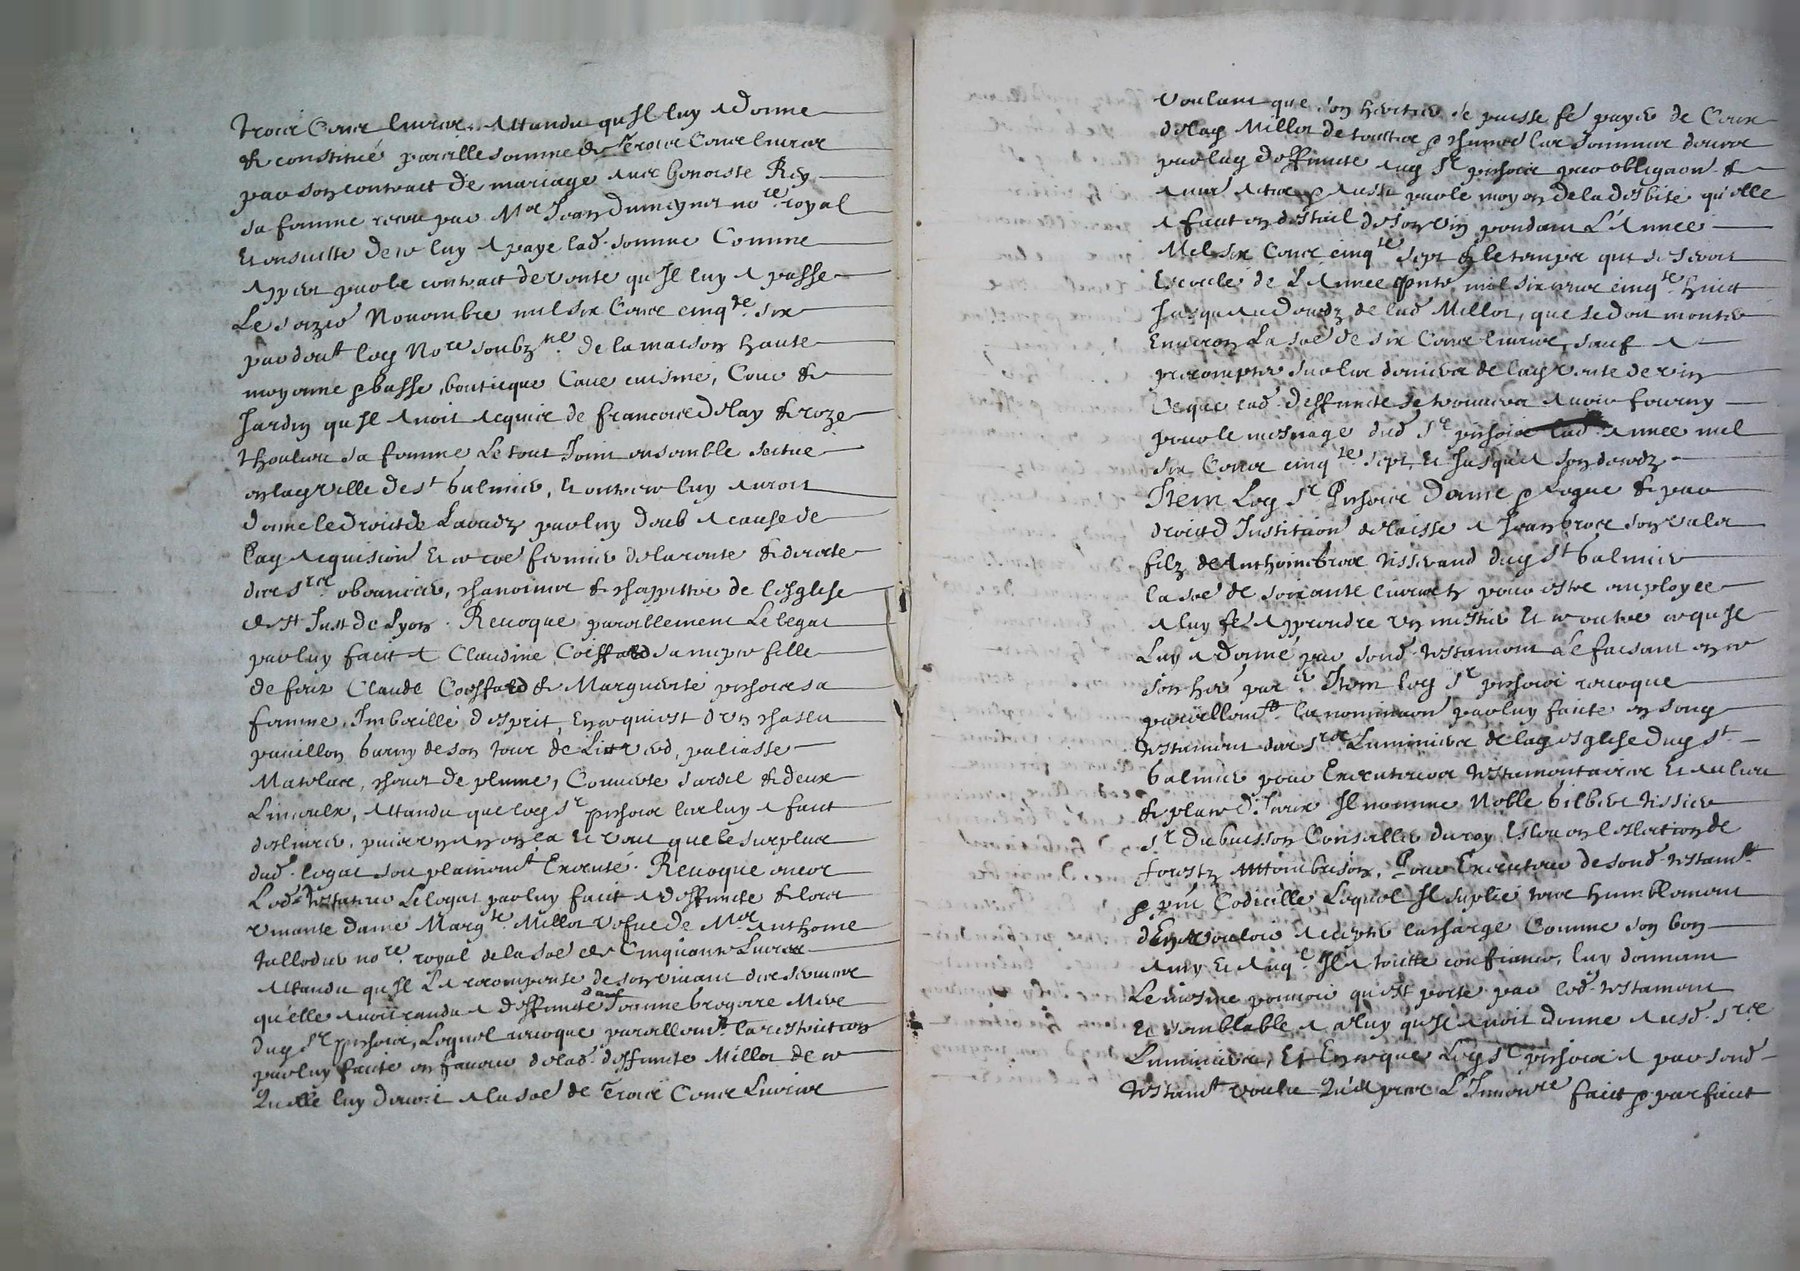 trois Cens livres, Attandu qu'Il luy a donne
& constitué pareille somme de Trois Cens livres
par son contract de mariage avec benoiste Rey
sa femme receu par Me Jean Dumeynet nore royal
Et ensuitte de ce luy a paye lad. somme Comme
Appert par le contract de vente qu'Il luy a passe
Le seizie Novembre mil six Cens cinqte six
pardevt led Nore soubzne de la maison haute
moyenne & basse, bouticque Cave cuisine, Cour &
Jardin qu'Il avoit acquis de francois delay & roze
thouleur sa femme Le tout Joint ensemble scitué
en lad ville de St Galmier, Et outre ce luy auroit
donne le droict de Laoudz par luy deub a cause de
lad acquision Et ce co.e fermier de la rente & directe
des Srs obeancier, chanoines & chappittre de l'Esglise
de St Just de Lyon. Revoque pareillement Le legat
par luy faict a Claudine Coiffard sa niepce fille
de feuz Claude Coiffard & Marguerite pischoire sa
femme, Imbecille d'esprit, En ce qui est d'un chaslit
pavillon garny de son tour de Lict verd, paliasse
Matelas, chevet de plume, Couverte sardil & deux
Linceulx, Attandu que led Sr pischoire les luy a faict
deslivrer, puis un an en ça Et veut que le surplus
dud. legat soit plainemt Execute. Revoque encor
Led. testateur Le legat par luy faict a deffuncte &
vivante dame Margte Millot vefve de Me Anthoine
tallodier nore royal de la so.e de Cinquante Livres
Attandu qu'Il L'a recompense de son vivant des services
qu'elle avoit randu a deffuncte dame Jeanne brogotte Mere
dud Sr pischoire, Lequel revoque pareillemt la restitution
par luy faicte en faveur de lad. deffuncte Millot de ce
Qu'elle luy devoit a la so.e de Trois Cens Livres
voulant que son heritier se puisse fe payer de Ceux
delad Millot de touttes & chunes les sommes deues
par lad deffuncte aud Sr pischoire par obligaon &
Autres & aussi par le moyen de la desbite qu'elle
a faict en destail de son vin pendant L'Année
Mil six Cens cinqte sept & le temps qui se seroit
Escoule de L'Année mil six cens cinqte huict
Jusqu'au decedz de lad Millot, que se doit monter
Environ La so.e de six Cens livres, sauf a
precompter sur les deniers de lad vente de vin
Ce que lad. deffuncte se trouvera avoir fourny
pour le mesnage dud Sr pischoire lad. Annee mil
six Cens cinqte sept Et Jusqu'a son decedz
Item Led Sr Pischoire donne & legue & par
droict d'Institution delaisse a Jean brot son valet
filz de Anthoine brot tisserand dud St Galmier
la so.e de soixante livres pour estre employee
a luy fe Apprendre un mestier Et ce outre ce qu'Il
Luy a donne par sond. testament Le faisant en ce
son her parer. Item led Sr pischoire revoque
pareillemt la nominaon par luy faicte en sond
testament des Srs Luminiers de lad esglise dud St
Galmier pour Executeurs testamentaires Et au lieu
& place d'Iceux Il nomme Noble Gilbert tissier
Sr Dubuisson Conseiller du roy Esleu en l'eslection de
forestz Montbrison, Pour Executeur de sond. testamt
& pnt Codicille Lequel Il suplie tres humblement
d'En vouloir accepter la charge Comme son bon
amy Et auql Il a toutte confiance, luy donnant
Le mesme pouvoir qu'est porte par led. testament
Et semblable a celuy qu'Il avoit donne ausd. Srs
Luminiers, Et En ce que Led Sr pischoire a par sond
testamt voulu Qu'apres L'Invre faict & parfaict